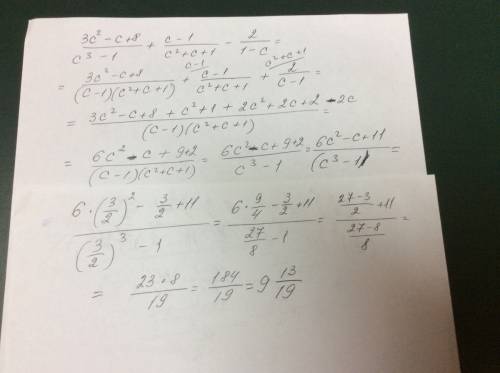 (3c² - c + 8)/(c³ - 1) + (c - 1)/(c² + c + 1) - 2/(1 - c) =
= (3c² - c + 8)/((c - 1)(c² + c + 1)) + (c - 1)/(c² + c + 1) [c - 1] + 2/(c - 1) [c² + c + 1] =
= (3c² - c + 8 + c² + 1 + 2c² + 2c + 2 - 2c)/((c - 1)(c² + c + 1)) =
= (6c² - c + 9 + 2)/((c - 1)(c² + c + 1)) = (6c² - c + 9 + 2)/(c³ - 1) = (6c² - c + 11)/(c³ - 1) =
(6 · (3/2)² - 3/2 + 11)/((3/2)³ - 1) = (6 · 9/4 - 3/2 + 11)/(27/8 - 1) = ((27 - 3)/2 + 11)/((27 - 8)/8) =
= (23 · 8)/19 = 184/19 = 9 13/19